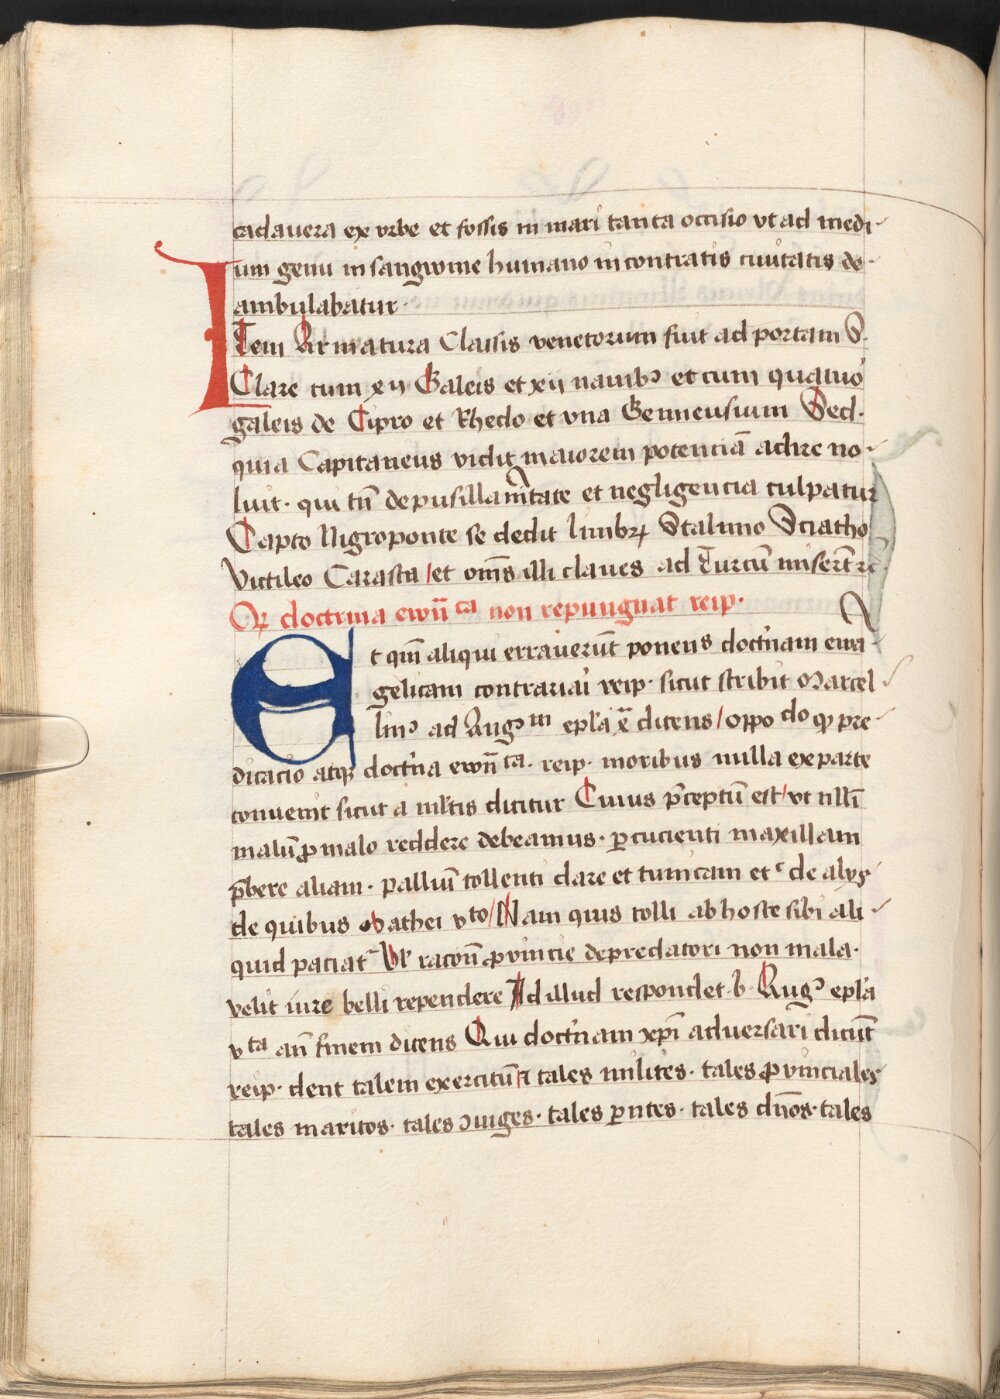 cadauera ex vrbe et fossis in mari tanta occisio vt ad medi-
um genu in sangwine humano in contratis ciuitatis de-
ambulabatur.
Item Armatura Classis venetorum fuit ad portam S.
Clare cum xij Galeis et xij nauibꝰ et cum quatuo
galeis de Cipro et Rhedo et vna Gennensium Sed.
quia Capitaneus vidit maiorem potenciā adire no-
luit. qui tn̄ de pusillamītate et negligencia culpatur
Capto Nigroponte se dedit limbrꝝ Staliino Sciatho
Victileo Carasta / et om̄s illi claues ad Turcū miserūt rc̄.
Qꝝ doctrina ewūᶜᵃ non repungnat reip.
Et qm̄ aliqui errauerūt ponens doctʼnam ewa-
gelicam contrariaʼi reip. sicut scribit Marcel
linꝰ ad Augꝰᵐ epl̄a x̄ dicens / oppoᵈᵒ ꝙ pre-
dicacio atqꝫ doctʼna ewn̄ᶜᵃ. reip. moribus nulla ex parte
conuenit sicut a ml̄tis dicitur Cuius p̄ceptū est / vt nll̄i
malū ꝓ malo reddere debeamus. ꝑcucienti maxillam
p̄bere aliam. palliū tollenti dare et tunicam etᶜ de alijs
de quibus Mathei vᵗᵒ / Nam quis tolli ab hoste sibi ali-
quid paciat᷑ Vl̓ racon̄ ꝓvincie depredatori non mala.
velit iure belli rependere Ad illud respondet. b. Augꝰ epl̄a
vᵗᵃ an̄ finem dicens Qui doctʼnam xp̄i aduersari dicūt
reip. dent talem exercitū / tales milites. tales ꝓvinciales
tales maritos. tales ꝯiuges. tales ꝑntes. tales dn̄os. tales